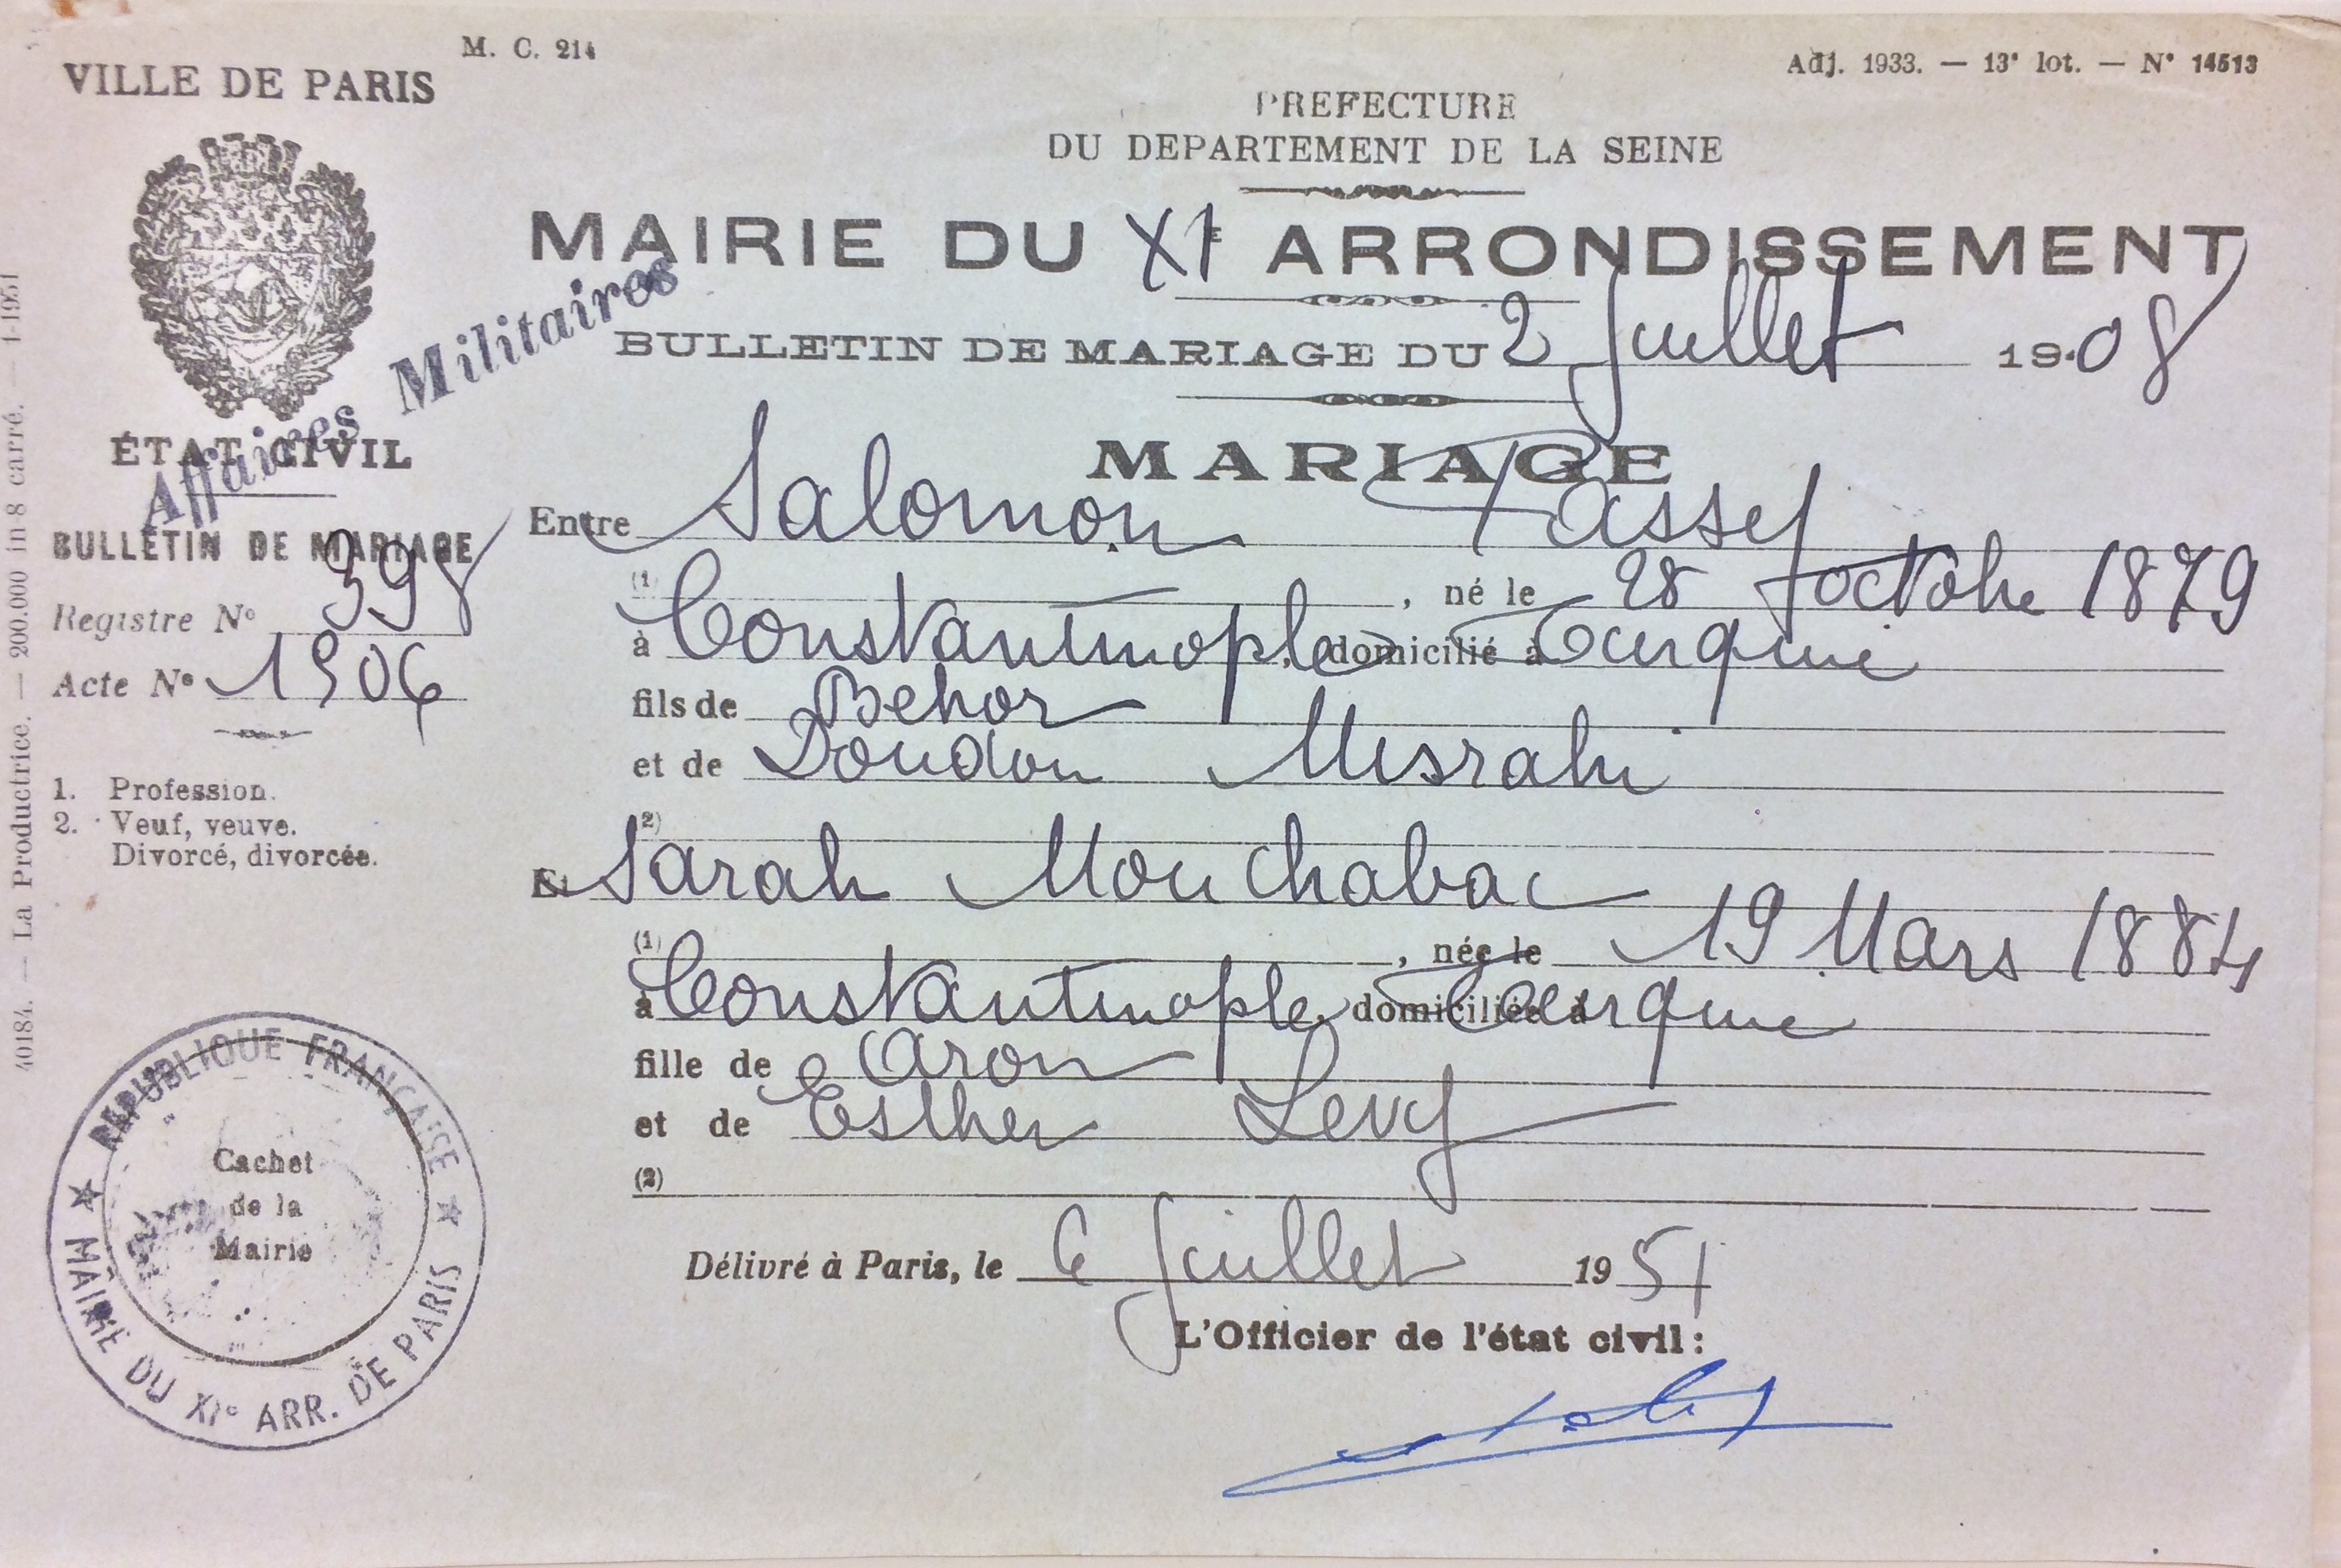 M. C. 214
Adj. 1933. — 13e lot. — N° 14513
VILLE DE PARIS
PREFECTURE
DU DEPARTEMENT DE LA SEINE
MAIRIE DU XIE ARRONDISSEMENT
BULLETIN DE MARIAGE DU 2 Juillet 1908
Affaires Militaires
ÉTAT CIVIL
BULLETIN DE MARIAGE
Registre N° 398
Acte N° 1906
1. Profession.
2. Veuf, veuve.
Divorcé, divorcée.
MARIAGE
Entre Salomon
(1) , né le 28 octobre 1879
à Constantinople, domicilié à Turquie
fils de Behor
et de Doudou Misrahi
(2)
Et Sarah Mouchabac
(1) , née le 19 Mars 1884
à Constantinople, domiciliée à Turquie
fille de Aron
et de Esther Levy
(2)
Délivré à Paris, le 6 Juillet 1951
L'Officier de l'état civil :
RÉPUBLIQUE FRANÇAISE
MAIRIE DU XIe ARR. DE PARIS
Cachet
de la
Mairie
40184. — La Productrice. — 200.000 in-8 carré. — 1-1951